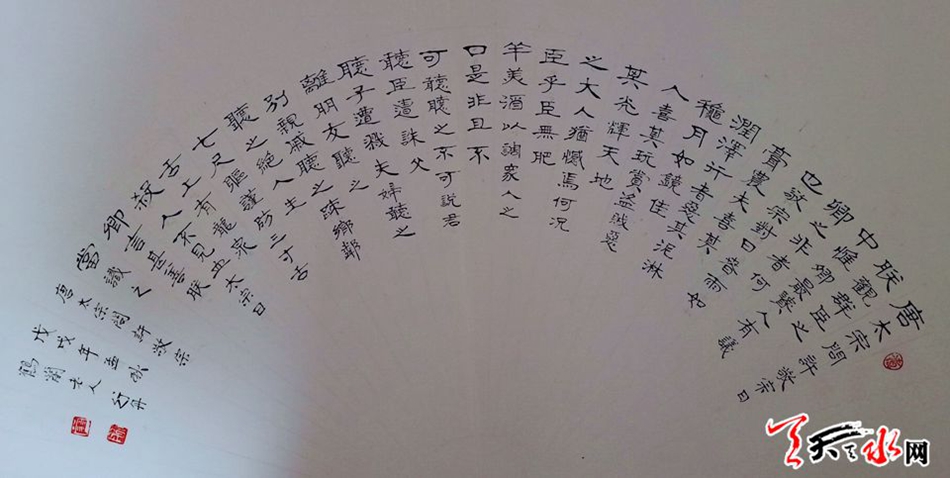 唐太宗問許敬宗曰
朕觀群臣之
中惟卿最賢人有議
卿之非者何
也敬宗對曰春雨如
膏農夫喜其
潤澤行者惡其泥淋
穐月如鏡佳
人喜其玩賞盜賊惡
其光輝天地
之大人猶憾焉何況
臣乎臣無肥
羊美酒以調衆人之
口是非且不
可聽聽之不可說君
聽臣遭誅父
聽子遭戮夫婦聽之
離朋友聽之疎鄉鄰
別親戚
聽之絕人生
七尺軀謹防三寸舌
舌上有龍泉
殺人不見血太宗曰
卿言甚善朕
當識之
唐太宗問許敬宗
戊戌年孟秋
鶴蘭老人
天天水网